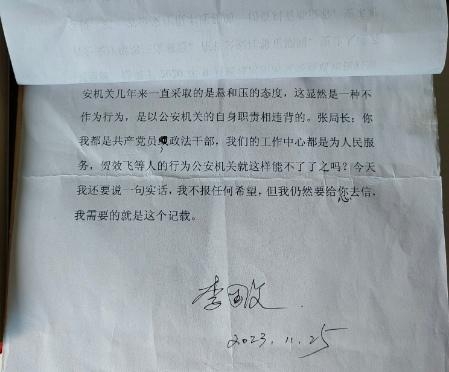 安机关几年来一直采取的是悬和压的态度，这显然是一种不
作为行为，是以公安机关的自身职责相违背的。张局长：你
我都是共产党员政法干部，我们的工作中心都是为人民服
务，贺效飞等人的行为公安机关就这样能不了了之吗？今天
我还要说一句实话，我不报任何希望，但我仍然要给您去信，
我需要的就是这个记载。
李文
2023.11.25